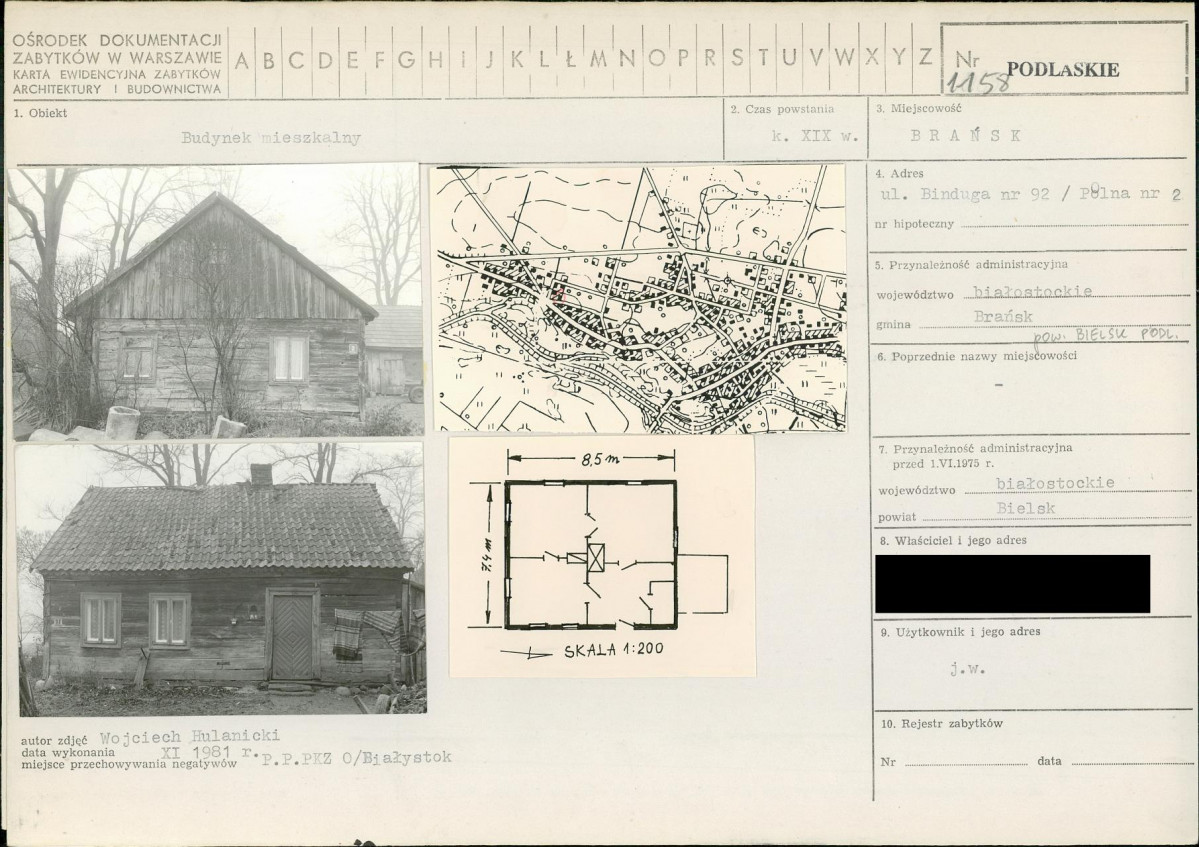 OŚRODEK DOKUMENTACJI
ZABYTKÓW W WARSZAWIE
KARTA EWIDENCYJNA ZABYTKÓW
ARCHITEKTURY I BUDOWNICTWA
A B C D E F G H I J K L Ł M N O P R S T U V W X Y Z
Nr
1158 PODLASKIE
1. Obiekt
Budynek mieszkalny
2. Czas powstania
k. XIX w.
3. Miejscowość
BRAŃSK
4. Adres
ul. Binduga nr 92 / Polna nr 2
nr hipoteczny
5. Przynależność administracyjna
województwo białostockie
gmina Brańsk
pow. BIELSK PODL.
6. Poprzednie nazwy miejscowości
-
7. Przynależność administracyjna
przed 1.VI.1975 r.
województwo białostockie
powiat Bielsk
8. Właściciel i jego adres
9. Użytkownik i jego adres
j.w.
10. Rejestr zabytków
Nr data
8,5 m
7,4 m
SKALA 1:200
autor zdjęć Wojciech Hulanicki
data wykonania XI 1981 r.
miejsce przechowywania negatywów P.P.PKZ O/Białystok